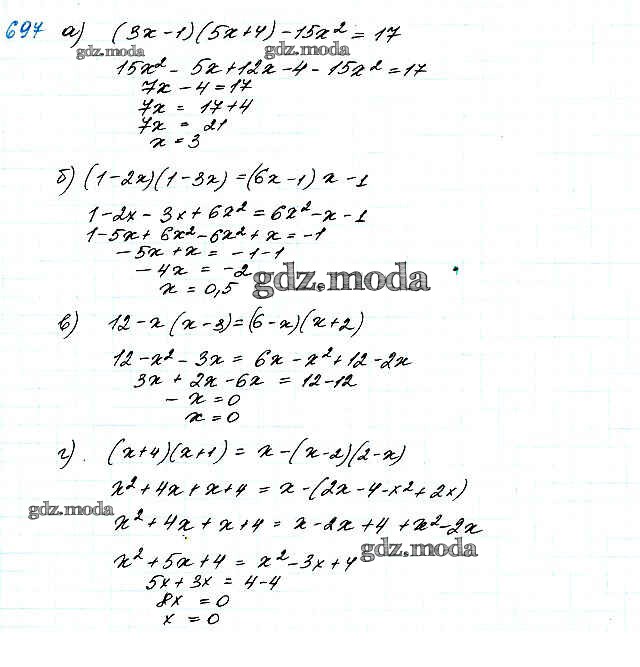 697 а) (3x-1)(5x+4)-15x² = 17
gdz.moda gdz.moda
15x² - 5x+12x-4-15x² = 17
7x-4 = 17
7x = 17+4
7x = 21
x = 3
б) (1-2x)(1-3x) = (6x-1)x-1
1-2x-3x+6x² = 6x²-x-1
1-5x+6x²-6x²+x = -1
-5x+x = -1-1
-4x = -2
x = 0,5
gdz.moda
в) 12-x(x-3) = (6-x)(x+2)
12-x²-3x = 6x-x²+12-2x
3x+2x-6x = 12-12
-x = 0
x = 0
г). (x+4)(x+1) = x-(x-2)(2-x)
x²+4x+x+4 = x-(2x-4-x²+2x)
gdz.moda
x²+4x+x+4 = x-2x+4+x²-2x
x²+5x+4 = x²-3x+4
gdz.moda
5x+3x = 4-4
8x = 0
x = 0